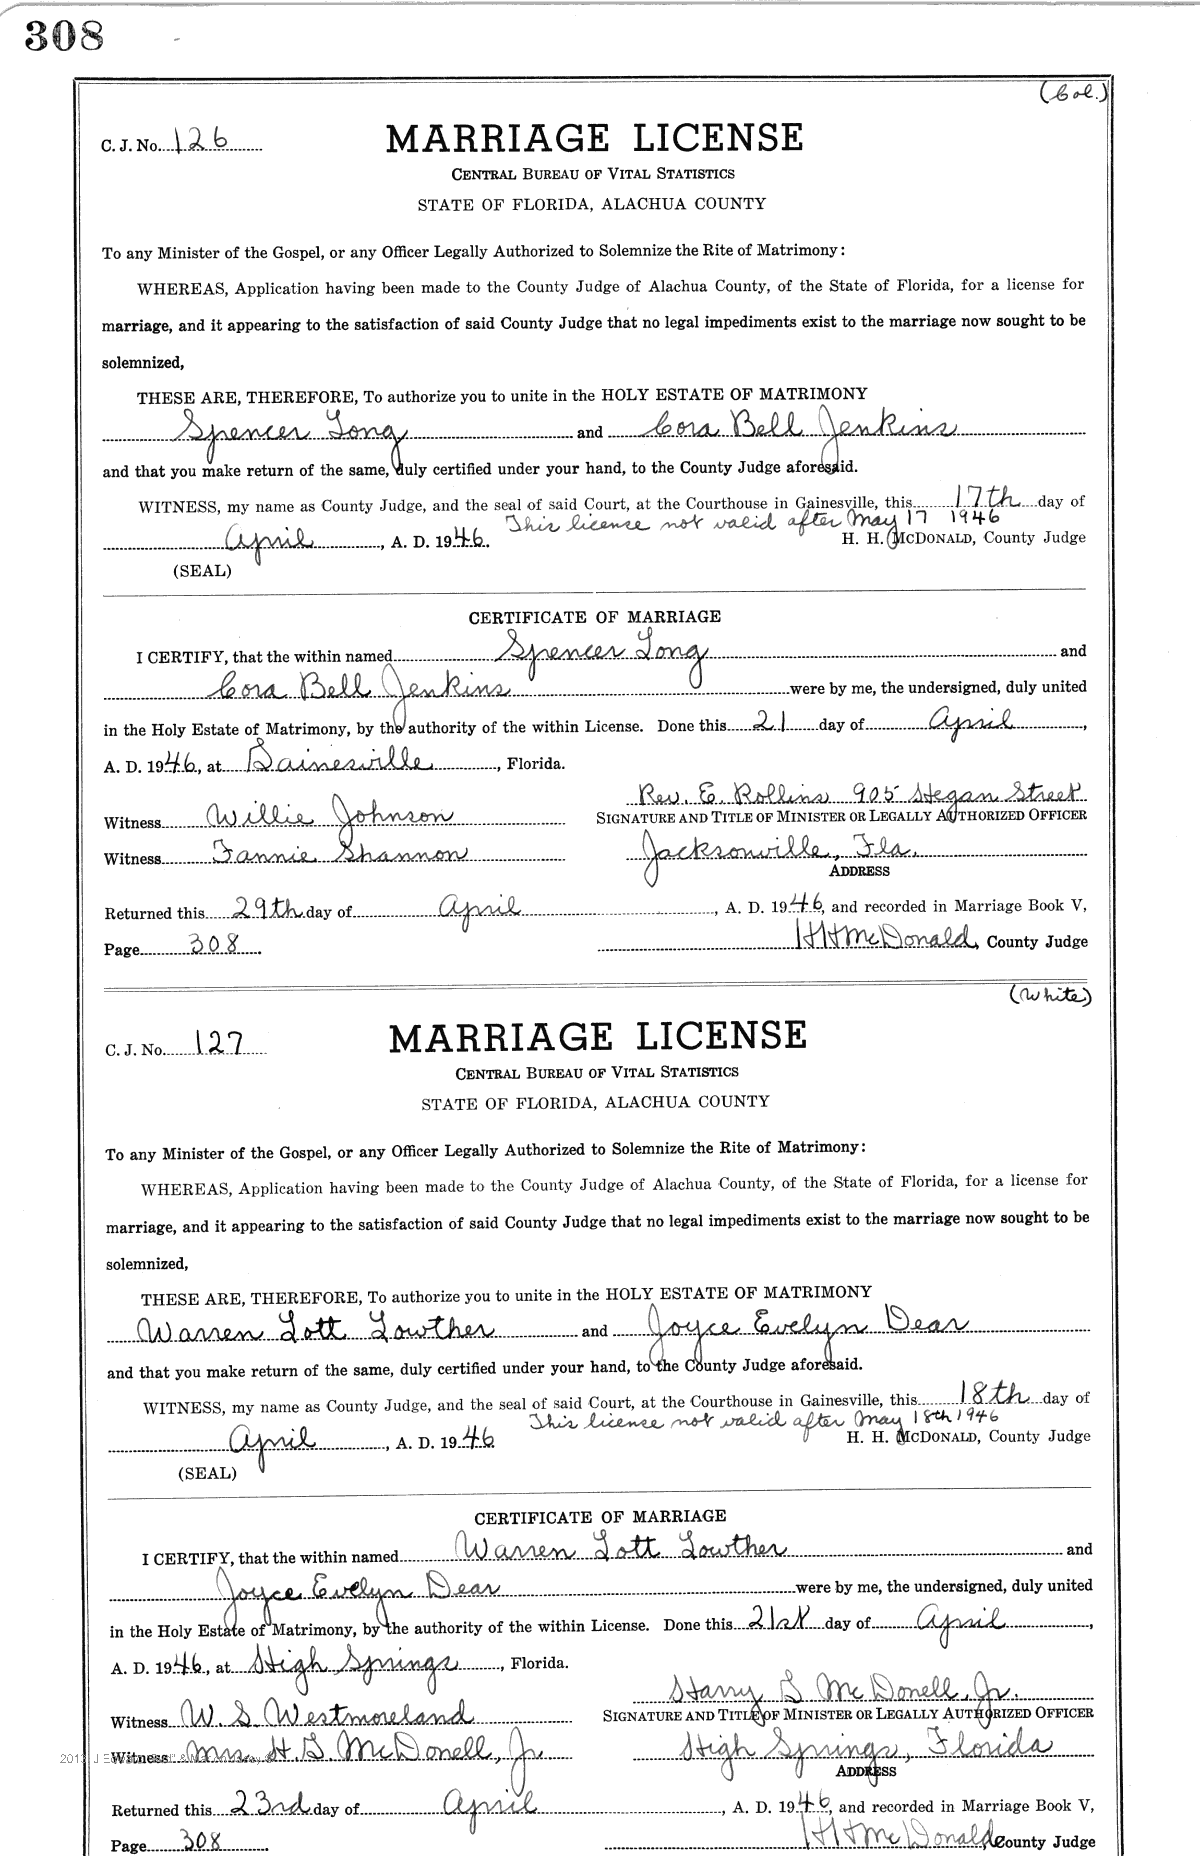 308
(Col.)
C. J. No. 126
MARRIAGE LICENSE
CENTRAL BUREAU OF VITAL STATISTICS
STATE OF FLORIDA, ALACHUA COUNTY
To any Minister of the Gospel, or any Officer Legally Authorized to Solemnize the Rite of Matrimony:
WHEREAS, Application having been made to the County Judge of Alachua County, of the State of Florida, for a license for
marriage, and it appearing to the satisfaction of said County Judge that no legal impediments exist to the marriage now sought to be
solemnized,
THESE ARE, THEREFORE, To authorize you to unite in the HOLY ESTATE OF MATRIMONY
Spencer Long and Cora Bell Jenkins
and that you make return of the same, duly certified under your hand, to the County Judge aforesaid.
WITNESS, my name as County Judge, and the seal of said Court, at the Courthouse in Gainesville, this 17th day of
This license not valid after May 17 1946
April, A. D. 1946. H. H. MCDONALD, County Judge
(SEAL)
CERTIFICATE OF MARRIAGE
I CERTIFY, that the within named Spencer Long and
Cora Bell Jenkins were by me, the undersigned, duly united
in the Holy Estate of Matrimony, by the authority of the within License. Done this 21 day of April,
A. D. 1946, at Gainesville, Florida.
Rev. E. Rollins 905 Hegan Street
Witness Willie Johnson SIGNATURE AND TITLE OF MINISTER OR LEGALLY AUTHORIZED OFFICER
Witness Fannie Shannon Jacksonville, Fla.
ADDRESS
Returned this 29th day of April, A. D. 1946, and recorded in Marriage Book V,
Page 308. H H McDonald, County Judge
(White)
C. J. No. 127
MARRIAGE LICENSE
CENTRAL BUREAU OF VITAL STATISTICS
STATE OF FLORIDA, ALACHUA COUNTY
To any Minister of the Gospel, or any Officer Legally Authorized to Solemnize the Rite of Matrimony:
WHEREAS, Application having been made to the County Judge of Alachua County, of the State of Florida, for a license for
marriage, and it appearing to the satisfaction of said County Judge that no legal impediments exist to the marriage now sought to be
solemnized,
THESE ARE, THEREFORE, To authorize you to unite in the HOLY ESTATE OF MATRIMONY
Warren Lott Lowther and Joyce Evelyn Dear
and that you make return of the same, duly certified under your hand, to the County Judge aforesaid.
WITNESS, my name as County Judge, and the seal of said Court, at the Courthouse in Gainesville, this 18th day of
This license not valid after May 18th 1946
April, A. D. 1946 H. H. MCDONALD, County Judge
(SEAL)
CERTIFICATE OF MARRIAGE
I CERTIFY, that the within named Warren Lott Lowther and
Joyce Evelyn Dear were by me, the undersigned, duly united
in the Holy Estate of Matrimony, by the authority of the within License. Done this 21st day of April,
A. D. 1946, at High Springs, Florida.
Harry G McDonell, Jr.
Witness W. S. Westmoreland SIGNATURE AND TITLE OF MINISTER OR LEGALLY AUTHORIZED OFFICER
Witness Mrs. H. G. McDonell, Jr High Springs, Florida
ADDRESS
Returned this 23rd day of April, A. D. 1946, and recorded in Marriage Book V,
Page 308. H H McDonald, County Judge